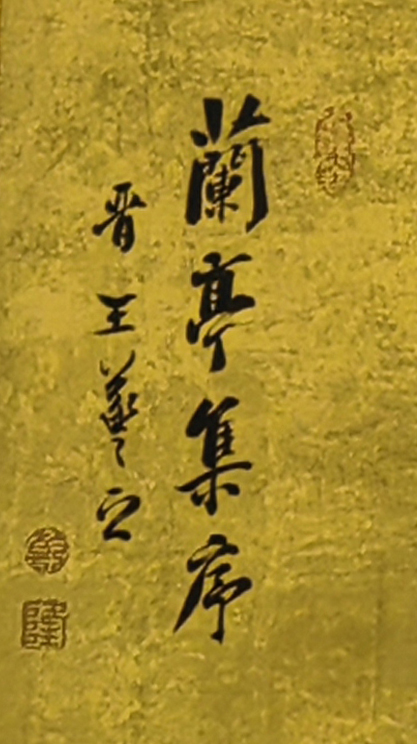 蘭亭集序
晋王羲之
乾
隆